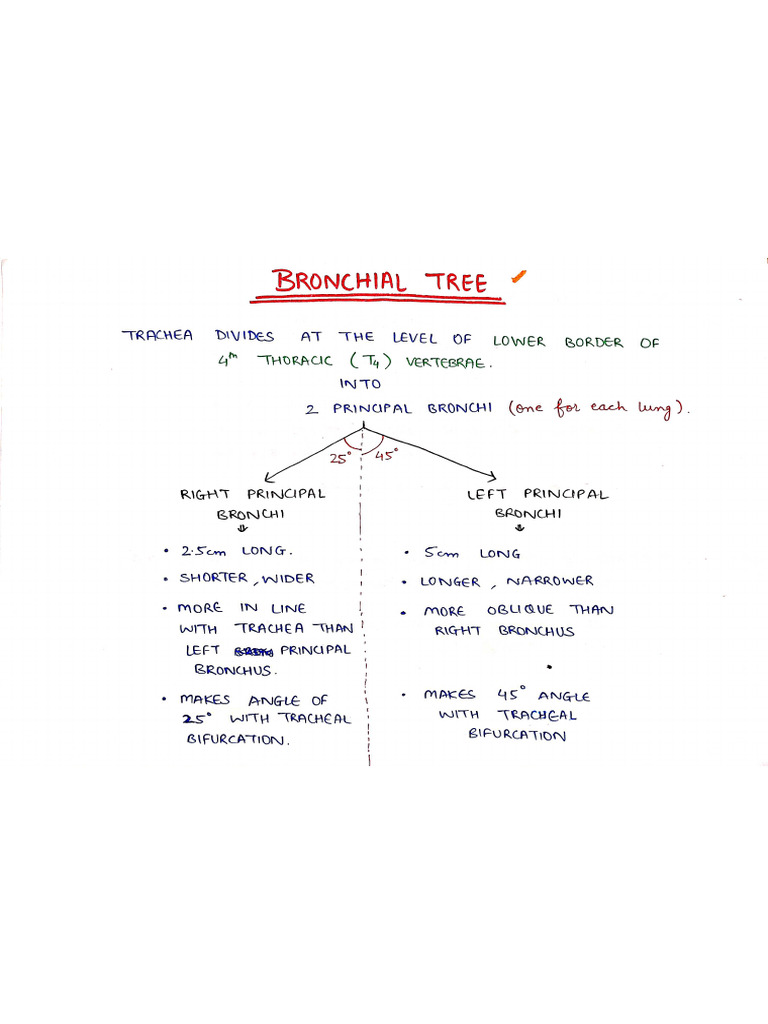 BRONCHIAL TREE
TRACHEA DIVIDES AT THE LEVEL OF LOWER BORDER OF
4th THORACIC (T4) VERTEBRAE.
INTO
2 PRINCIPAL BRONCHI (one for each lung).
25° 45°
RIGHT PRINCIPAL
BRONCHI
• 2.5cm LONG.
• SHORTER, WIDER
• MORE IN LINE
WITH TRACHEA THAN
LEFT PRINCIPAL
BRONCHUS.
• MAKES ANGLE OF
25° WITH TRACHEAL
BIFURCATION.
LEFT PRINCIPAL
BRONCHI
• 5cm LONG
• LONGER, NARROWER
• MORE OBLIQUE THAN
RIGHT BRONCHUS
• MAKES 45° ANGLE
WITH TRACHEAL
BIFURCATION